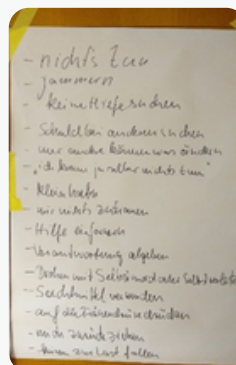 - nichts tun
- jammern
- keine Hilfe suchen
- Schuld bei anderen suchen
- nur andere können was ändern
- "ich kann ja selber nichts tun"
- klein
- mir nichts zutrauen
- Hilfe einfordern
- Verantwortung abgeben
- Drohen mit Selbstmord oder
- Suchtmittel verwenden
- auf die Tränendrüse drücken
- zurückziehen
- zur Last fallen